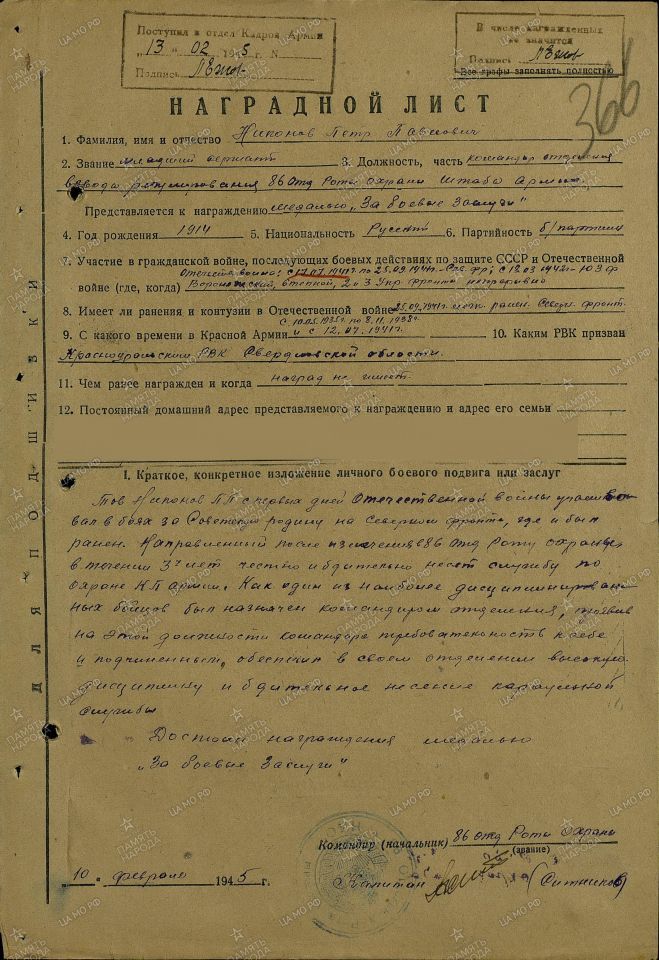 Поступил в отдел Кадров Армии
"13" 02 1945 г. N
Подпись
В числе награжденных
не значится
Подпись
Все графы заполнять полностью
366
НАГРАДНОЙ ЛИСТ
1. Фамилия, имя и отчество Никонов Петр Павлович
2. Звание младший сержант 3. Должность, часть командир отделения
взвода регулирования 86 отд Роты охраны Штаба Армии
Представляется к награждению медалью „За боевые заслуги"
4. Год рождения 1914 5. Национальность Русский 6. Партийность б/партийн
7. Участие в гражданской войне, последующих боевых действиях по защите СССР и Отечественной
Отечеств. война: с 17.07.1941г. по 25.09.1941г.- Сев. фр; с 12.03.1942г- Ю З ф
войне (где, когда) Воронежский, степной, 2 и 3 Укр фронта непрерывно
8. Имеет ли ранения и контузии в Отечественной войне 25.09.1941г. ранен. Северн. фронт.
с 10.05.1935г. по 8.11.1938г.
9. С какого времени в Красной Армии и с 12.07.1941г. 10. Каким РВК призван
Красноуральским РВК Свердловской области.
11. Чем ранее награжден и когда наград не имеет.
12. Постоянный домашний адрес представляемого к награждению и адрес его семьи
I. Краткое, конкретное изложение личного боевого подвига или заслуг
Тов Никонов П П с первых дней Отечественной войны участво
вал в боях за Советскую родину на Северном фронте, где и был
ранен. Направленный после излечения в 86 отд Роту охраны
в течении 3х лет честно и бдительно несет службу по
охране КП Армии. Как один из наиболее дисциплинирован
ных бойцов был назначен командиром отделения, проявив
на этой должности командира требовательность к себе
и подчиненным, обеспечил в своем отделении высокую
дисциплину и бдительное несение караульной
службы
Достоин награждения медалью
„За боевые заслуги"
Командир (начальник) 86 отд Роты охраны
(звание)
Капитан (Ситников)
"10" февраля 1945 г.
ДЛЯ ПОДШИВКИ
ПАМЯТЬ НАРОДА
ЦАМО.РФ